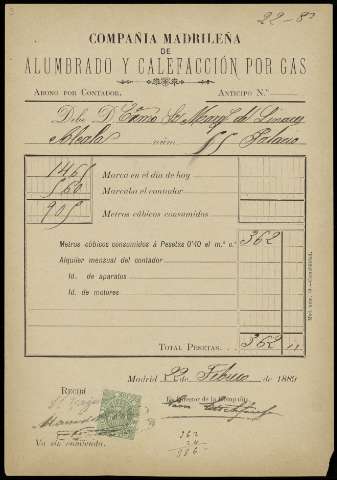 22-8º
COMPAÑIA MADRILEÑA
DE
ALUMBRADO Y CALEFACCIÓN POR GAS
ABONO POR CONTADOR. ANTICIPO N.º
Debe D. Exmo Sr Marqs de Linares
Alcalá núm 55 Palacio
1465 Marca en el día de hoy
560 Marcaba el contador
905 Metros cúbicos consumidos
Metros cúbicos consumidos á Pesetas 0'40 el m.³ c.º 362
Alquiler mensual del contador
Id. de aparatos
Id. de motores
TOTAL PESETAS. 362
Madrid 22 de Febrero de 1889
RECIBÍ
El Director de la Compañía,
Va sin enmienda.
362
24
386